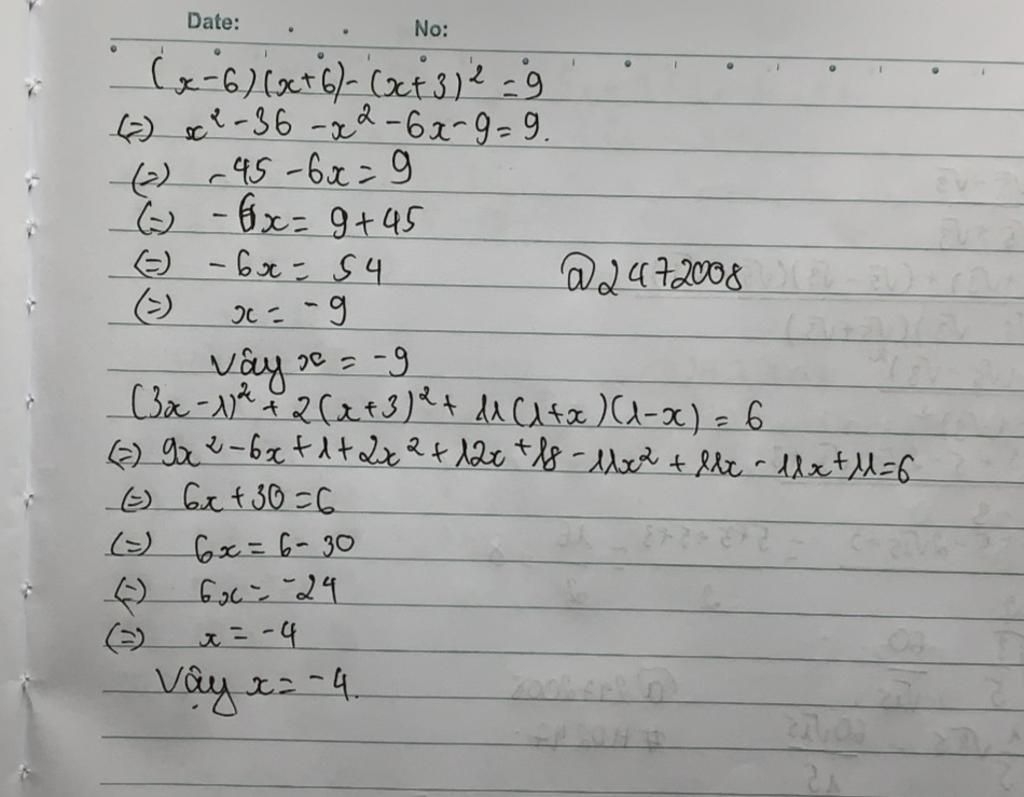 Date: No:
(x-6)(x+6)-(x+3)² = 9
(=) x² -36 -x² -6x-9=9.
(=) -45 -6x= 9
(=) -6x= 9+45
(=) -6x= 54
@2472008
(=) x= -9
Vây x= -9
(3x-1)² + 2(x+3)² + 11(1+x)(1-x) = 6
(=) 9x²-6x+1+2x²+12x+18-11x²+11x-11x+11=6
(=) 6x+30=6
(=) 6x=6-30
(=) 6x=-24
(=) x=-4
Vậy x=-4.